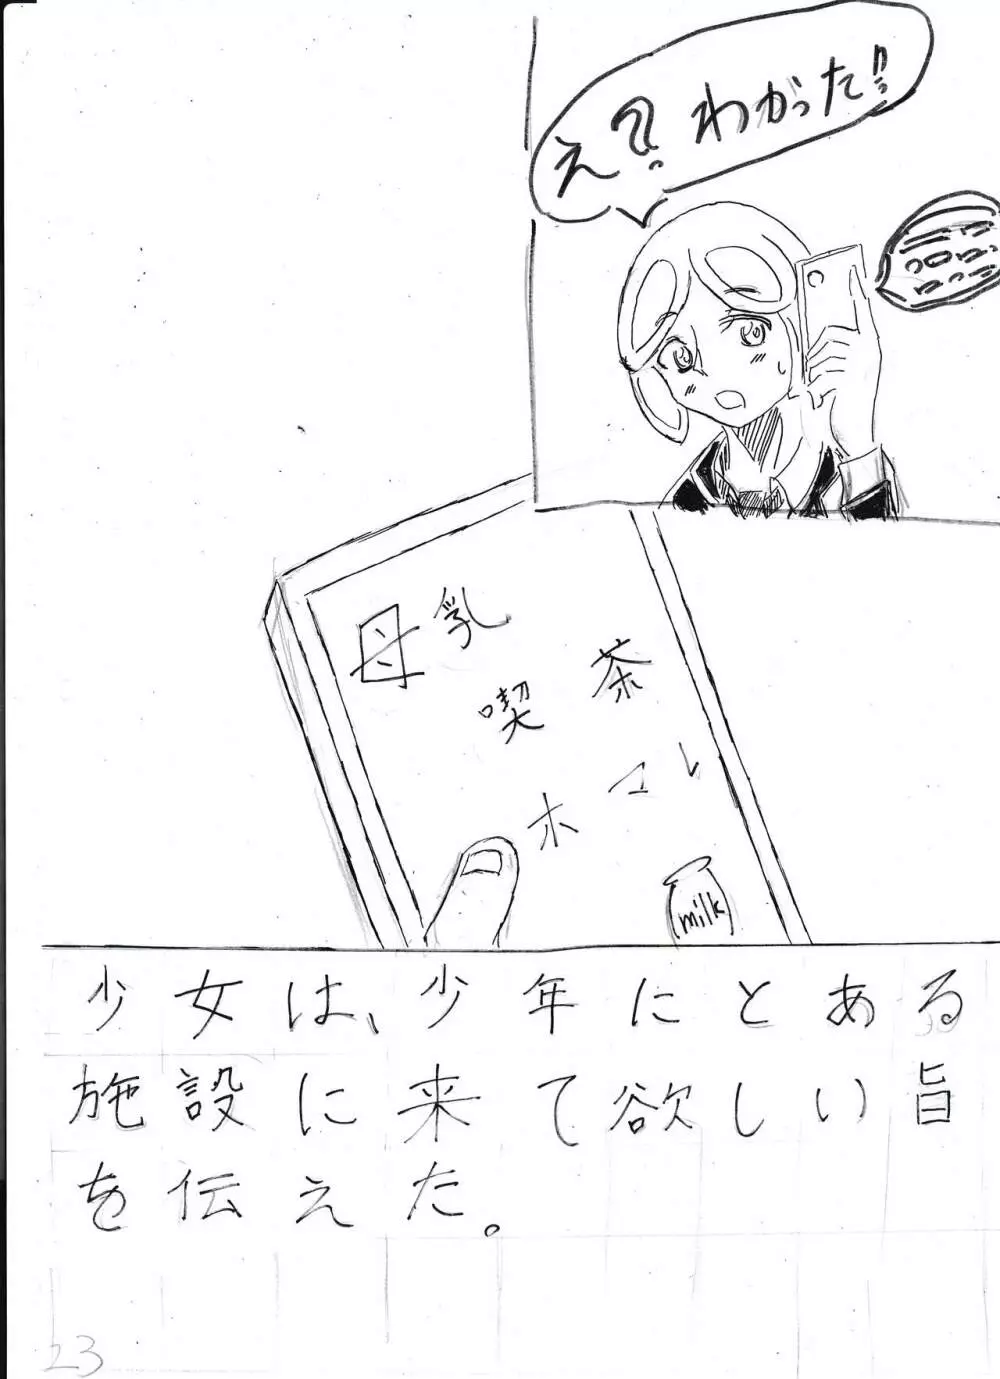 え?わかった!!
母乳
喫茶
milk
少女は、少年にとある
施設に来て欲しい旨
を伝えた。
23